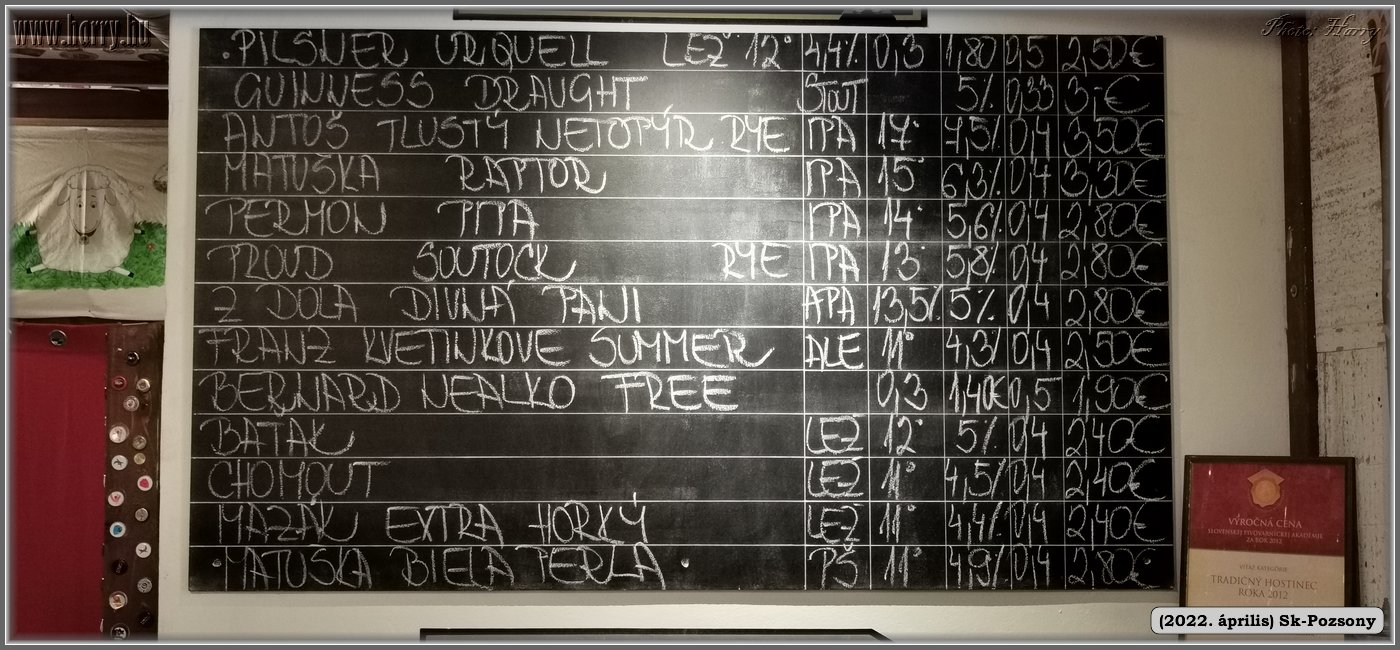 www.horry.hu
Photo: Horry
PILSNER URQUELL LEŽ 12° 4,4% 0,3 1,80 0,5 2,50€
GUINNESS DRAUGHT STOUT 5% 0,33 3,-€
ANTOŠ TLUSTÝ NETOPÝR RYE IPA 17° 7,5% 0,4 3,50€
MATUŠKA RAPTOR IPA 15° 6,3% 0,4 3,30€
PERMON PIPA IPA 14° 5,6% 0,4 2,80€
PROUD SOUTOCK RYE IPA 13° 5,8% 0,4 2,80€
Z DOLA DIVNÁ PANI APA 13,5% 5% 0,4 2,80€
FRANZ KVETINKOVE SUMMER ALE 11° 4,3% 0,4 2,50€
BERNARD NEALKO FREE 0,3 1,40€ 0,5 1,90€
BATÁK LEŽ 12° 5% 0,4 2,40€
CHOMOUT LEŽ 11° 4,5% 0,4 2,40€
MAZÁK EXTRA HORKÝ LEŽ 11° 4,4% 0,4 2,40€
MATUŠKA BIELA PERLA PŠ 11° 4,9% 0,4 2,80€
VÝROČNÁ CENA
SLOVENSKEJ PIVOVARNÍCKEJ AKADÉMIE
ZA ROK 2012
VÍŤAZ KATEGÓRIE
TRADIČNÝ HOSTINEC
ROKA 2012
(2022. április) Sk-Pozsony